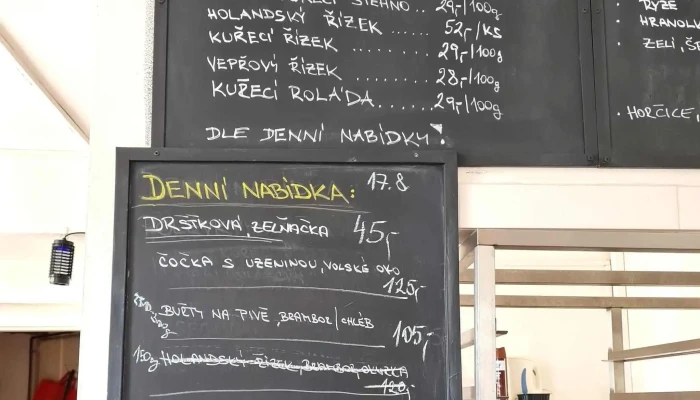 STEHNO.. 29,-/100g
HOLANDSKÝ ŘÍZEK .... 52,-/KS
KUŘECÍ ŘÍZEK ....... 29,-/100g
VEPŘOVÝ ŘÍZEK ...... 28,-/100g
KUŘECÍ ROLÁDA...... 29,-/100g
DLE DENNÍ NABÍDKY!
· RÝŽE
· HRANOLK
· ZELÍ,
· HOŘČICE,
DENNÍ NABÍDKA: 17.8
DRŠŤKOVÁ, ZELŇAČKA 45,-
ČOČKA S UZENINOU, VOLSKÉ OKO
125,-
BUŘTY NA PIVĚ, BRAMBOR/CHLÉB
105,-
150g HOLANDSKÝ ŘÍZEK, BRAMBOR, OKURKA
120,-